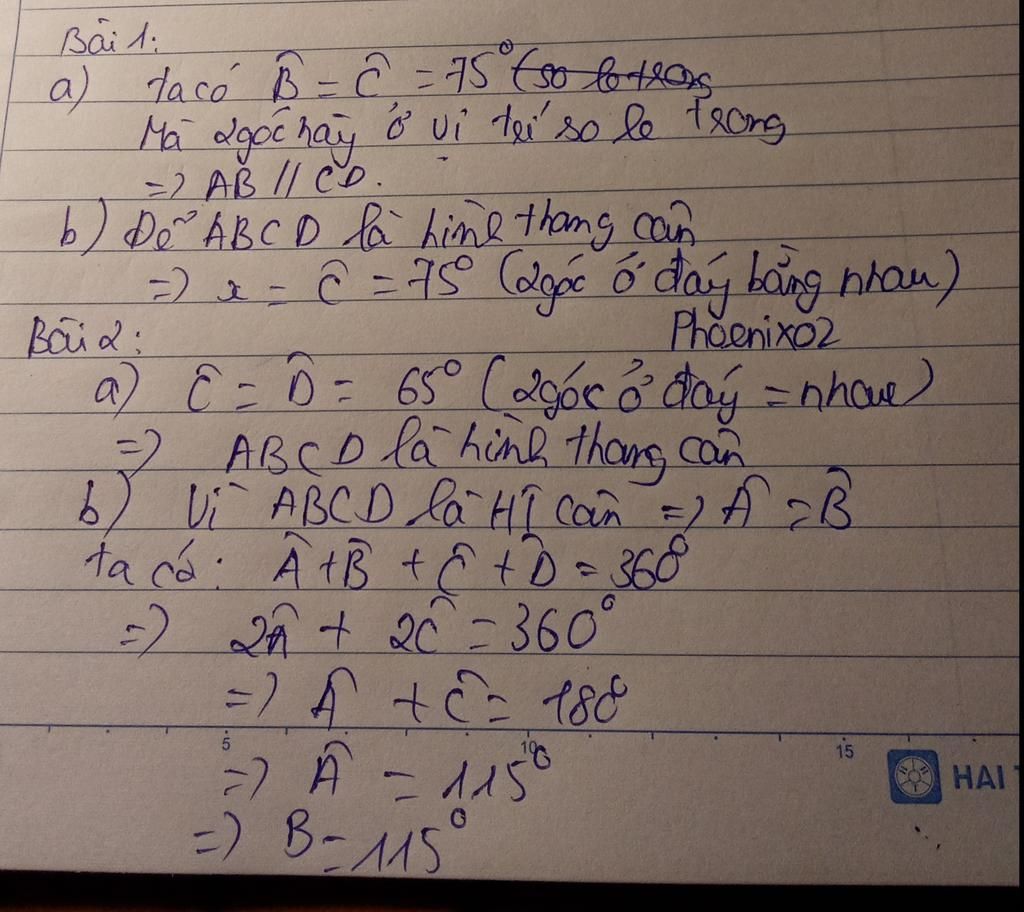 Bài 1:
a) ta có B̂ = Ĉ = 75° (so le trong
Mà 2 góc này ở vị trí so le trong
=> AB // CD.
b) Để ABCD là hình thang cân
=> x = Ĉ = 75° (2 góc ở đáy bằng nhau)
Phoenix02
Bài 2:
a) Ĉ = D̂ = 65° (2 góc ở đáy = nhau)
=> ABCD là hình thang cân
b) Vì ABCD là HT cân => Â = B̂
ta có: Â + B̂ + Ĉ + D̂ = 360°
=> 2Â + 2Ĉ = 360°
=> Â + Ĉ = 180°
5 10 15
HAI
=> Â = 115°
=> B = 115°